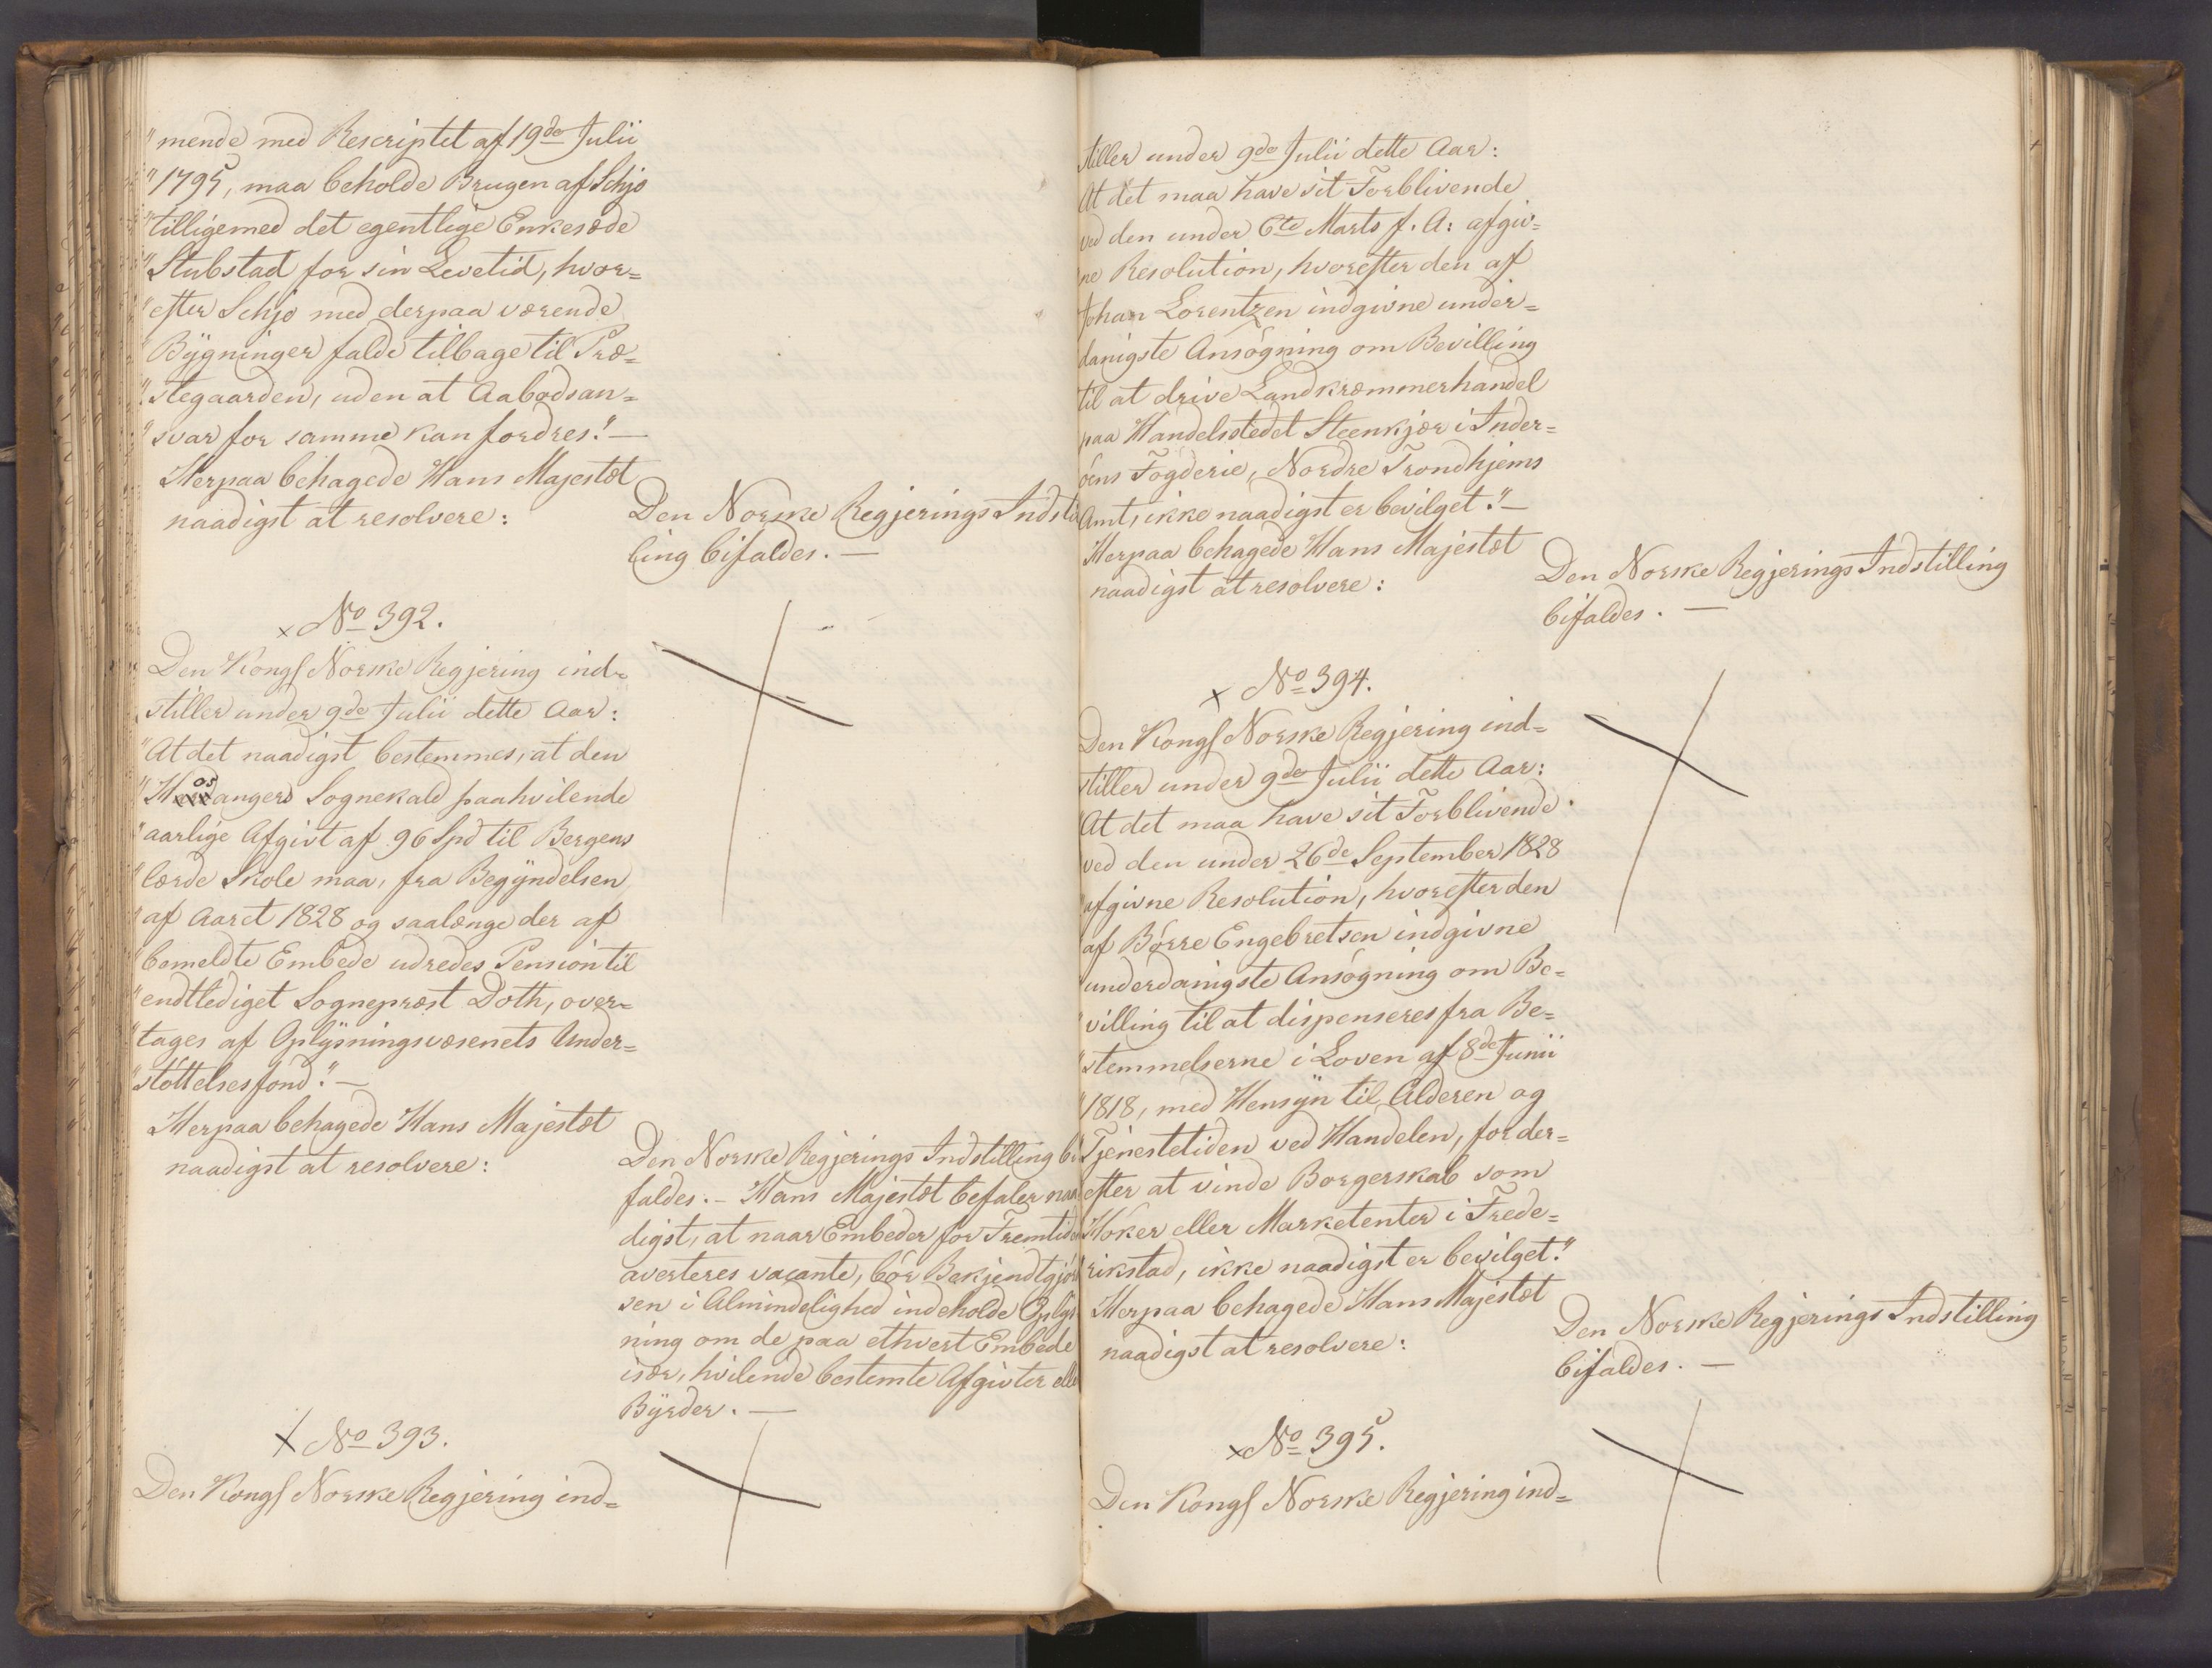 "mende med Rescriptet af 19de Julii
"1795, maa beholde Brugen af Schjø
"tilligemed det egentlige Enkesæde
"Stubstad for sin Levetid, hvor=
"efter Schjø med derpaa værende
"Bygninger falde tilbage til Præ=
"stegaarden, uden at Aabodsan=
"svar for samme kan fordres." —
Herpaa behagede Hans Majestæt
naadigst at resolvere:
Den Norske Regjerings Indstil
ling bifaldes. —
x No 392.
Den Kongl Norske Regjering ind=
stiller under 9de Julii dette Aar:
"At det naadigst bestemmes, at den
"Hosangers Sognekald paahvilende
"aarlige Afgivt af 96 Spd til Bergens
"lærde Skole maa, fra Begyndelsen
"af Aaret 1828 og saalænge der af
"bemeldte Embede udredes Pension til
"endtlediget Sognepræst Doth, over=
"tages af Oplysningsvæsenets Under=
"støttelsesfond." —
Herpaa behagede Hans Majestæt
naadigst at resolvere:
Den Norske Regjerings Indstilling bi
faldes. — Hans Majestæt befaler naa
digst, at naar Embeder for Fremtiden
averteres vacante, bør Bekjendtgjørel
sen i Almindelighed indeholde Oplys
ning om de paa ethvert Embede
især, hvilende bestemte Afgivter eller
Byrder. —
x No 393.
Den Kongl Norske Regjering ind=
stiller under 9de Julii dette Aar:
At det maa have sit Forblivende
ved den under 6te Marts f. A: afgiv=
ne Resolution, hvorefter den af
Johan Lorentzen indgivne under=
danigste Ansøgning om Bevilling
til at drive Landkræmmerhandel
paa Handelsstedet Steenkjær i Inder=
øens Fogderie, Nordre Trondhjems
Amt, ikke naadigst er bevilget." —
Herpaa behagede Hans Majestæt
naadigst at resolvere:
Den Norske Regjerings Indstilling
bifaldes. —
x No 394.
Den Kongl Norske Regjering ind=
stiller under 9de Julii dette Aar:
"At det maa have sit Forblivende
"ved den under 26de September 1828
"afgivne Resolution, hvorefter den
"af Børre Engebretsen indgivne
"underdanigste Ansøgning om Be=
"villing til at dispenseres fra Be=
"stemmelserne i Loven af 8de Junii
"1818, med Hensyn til Alderen og
Tjenestetiden ved Handelen, for der=
efter at vinde Borgerskab som
Høker eller Marketenter i Frede=
rikstad, ikke naadigst er bevilget."
Herpaa behagede Hans Majestæt
naadigst at resolvere:
Den Norske Regjerings Indstilling
bifaldes. —
x No 395.
Den Kongl Norske Regjering ind=